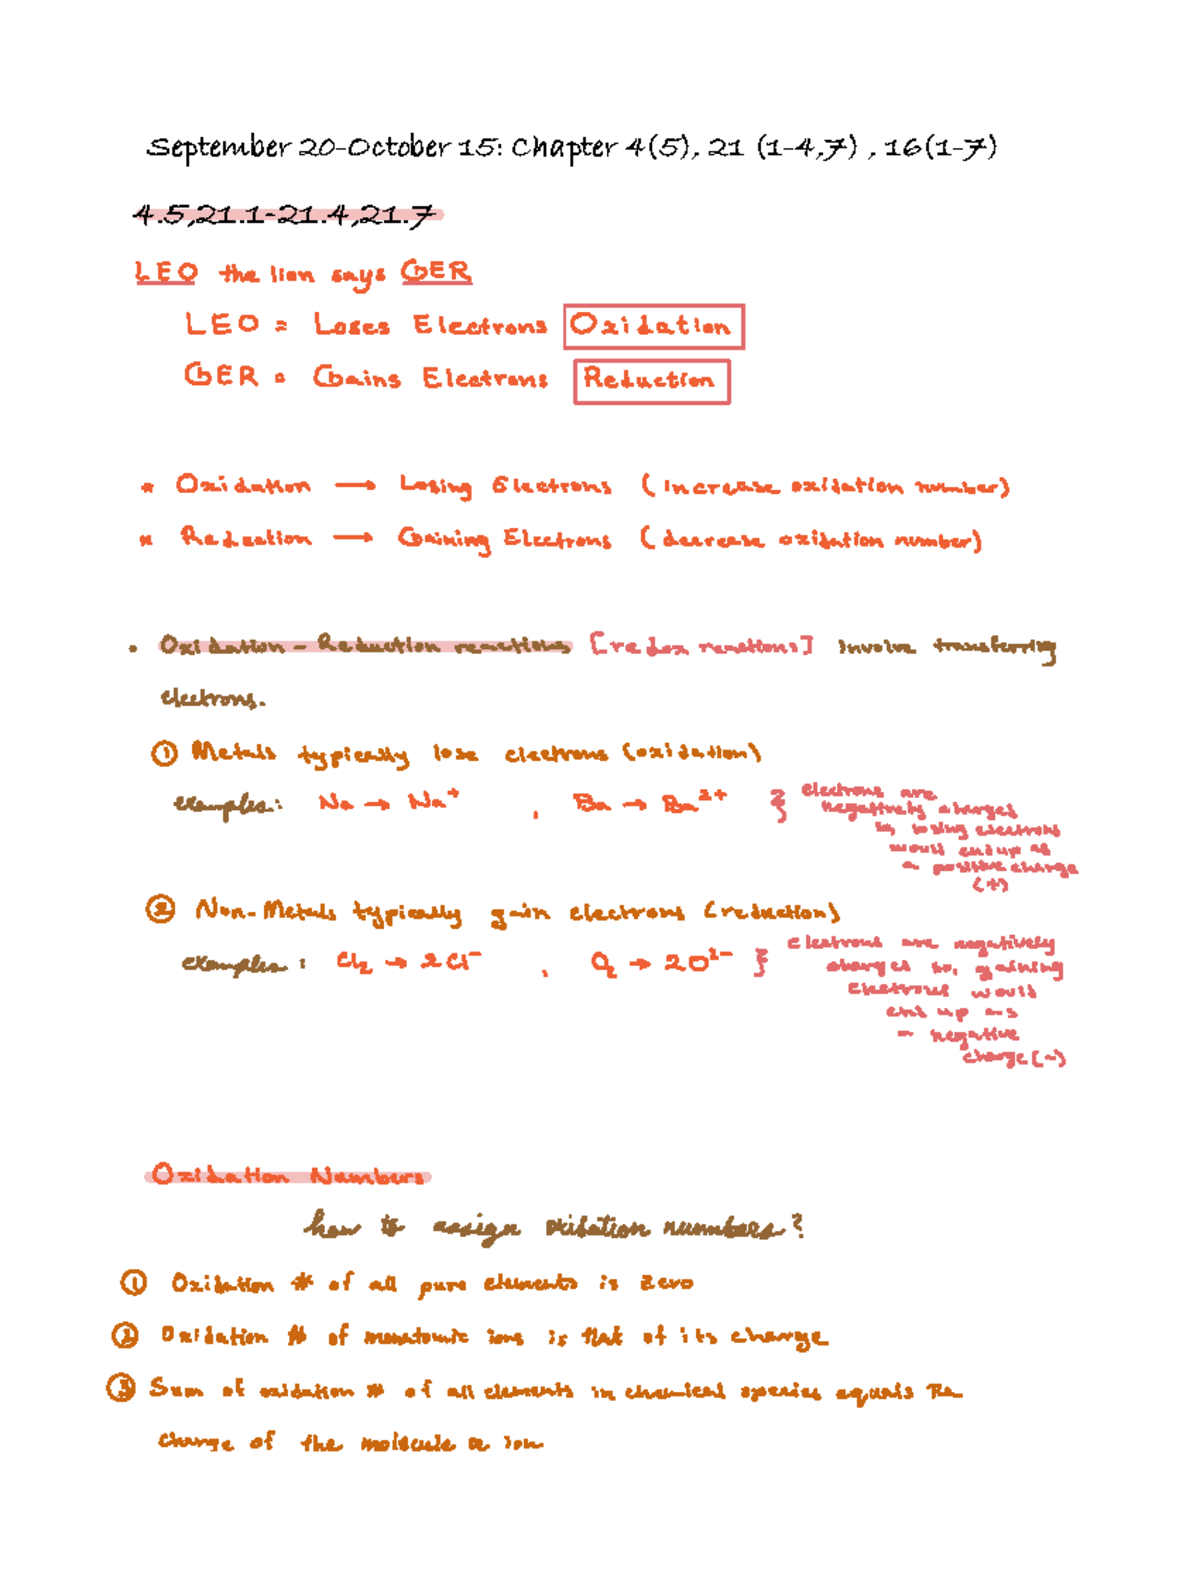 September 20-October 15: Chapter 4(5), 21 (1-4,7) , 16(1-7)
4.5,21.1-21.4,21.7
LEO the lion says GER
LEO = Loses Electrons Oxidation
GER = Gains Electrons Reduction
* Oxidation → Losing Electrons (increase oxidation number)
* Reduction → Gaining Electrons (decrease oxidation number)
• Oxidation - Reduction reactions [redox reactions] involve transferring
electrons.
① Metals typically lose electrons (oxidation)
examples: Na → Na⁺ , Ba → Ba²⁺ } electrons are
negatively charged
so, losing electrons
would end up as
a positive charge
(+)
② Non-Metals typically gain electrons (reduction)
examples : Cl₂ → 2Cl⁻ , O₂ → 2O²⁻ } electrons are negatively
charged so, gaining
electrons would
end up as
a negative
charge (-)
Oxidation Numbers
how to assign oxidation numbers?
① Oxidation # of all pure elements is zero
② Oxidation # of monatomic ions is that of its charge
③ Sum of oxidation # of all elements in chemical species equals the
charge of the molecule or ion